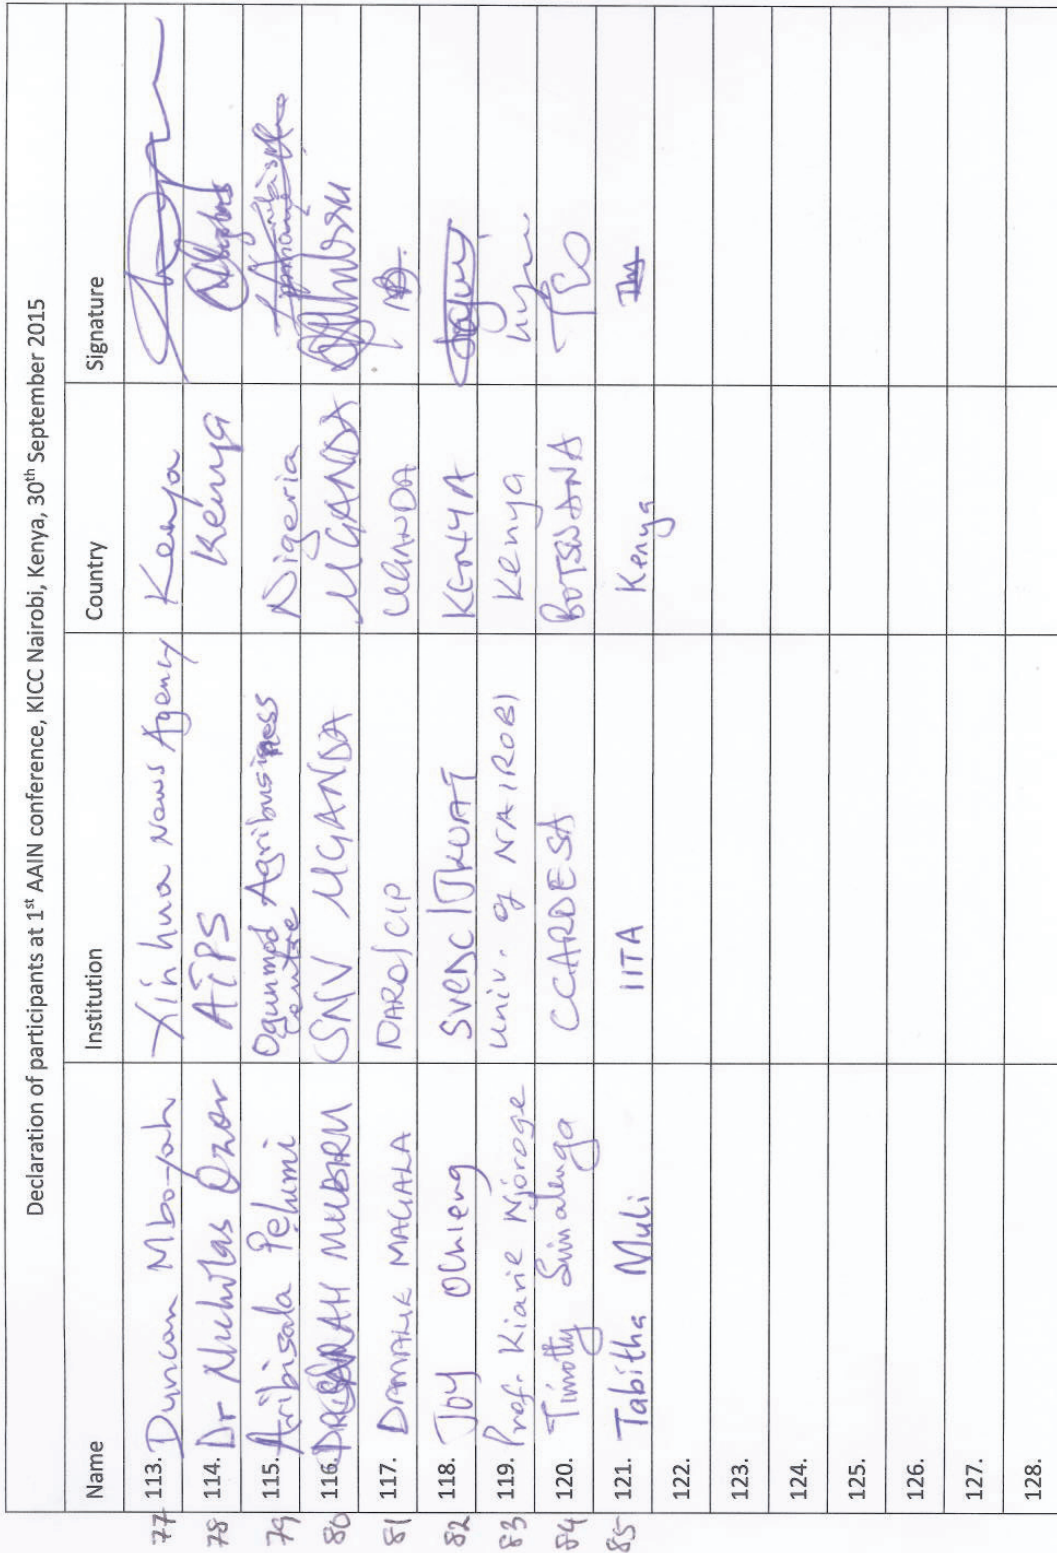 Declaration of participants at 1st AAIN conference, KICC Nairobi, Kenya, 30th September 2015
Name Institution Country Signature
77 113. Duncan Mboyah Xinhua News Agency Kenya
78 114. Dr Nicholas Ozor ATPS Kenya
79 115. Aribisala Pelumi Ogunmod Agribusiness Centre Nigeria
80 116. SARAH MUBIRU SNV UGANDA UGANDA
81 117. MAGALA NARO/CIP UGANDA
82 118. JOY OCHIENG SVEDC/JKUAT KENYA
83 119. Prof. Kiarie Njoroge Univ. of NAIROBI Kenya
84 120. Timothy Simalenga CCARDESA BOTSWANA
85 121. Tabitha Muli IITA Kenya
122.
123.
124.
125.
126.
127.
128.